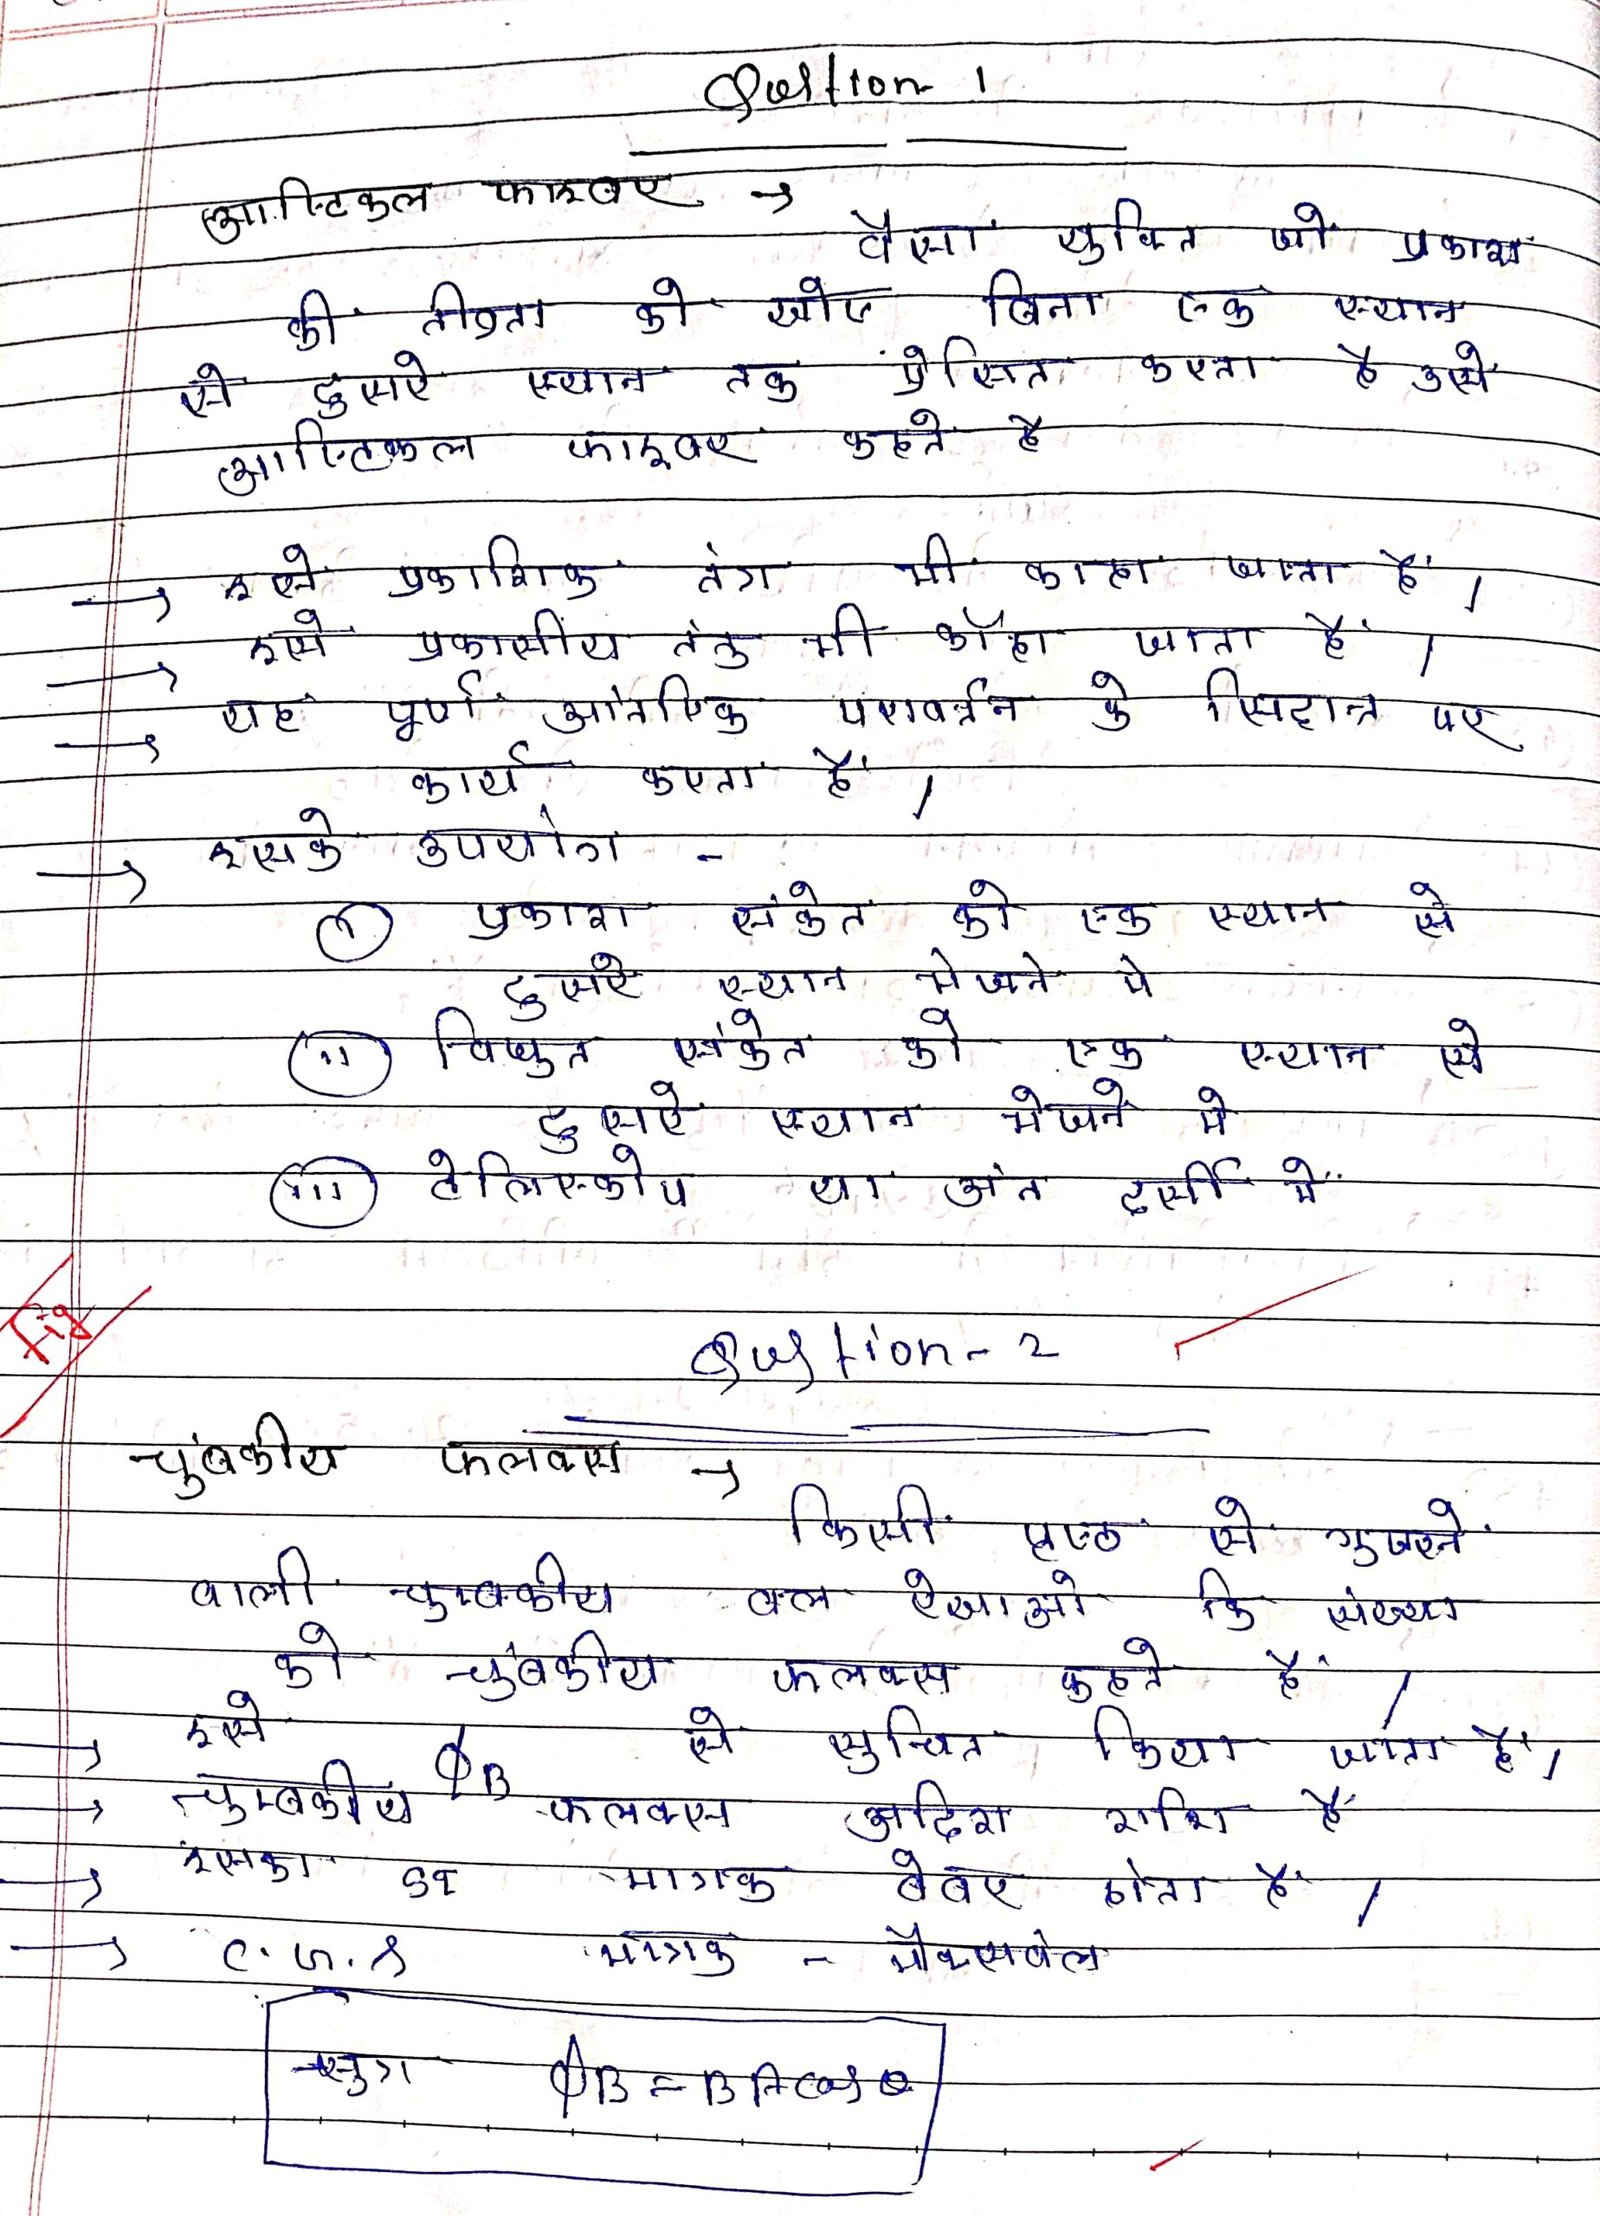 Question-1
आप्टिकल फाइबर →
वैसा युक्ति जो प्रकाश
की तीव्रता को खोए बिना एक स्थान
से दुसरे स्थान तक प्रेसित करता है उसे
आप्टिकल फाइबर कहते है
→ इसे प्रकाशिक तंत्र भी काहा जाता है।
→ इसे प्रकासीय तंतु भी कॉहा जाता है।
→ यह पूर्ण आंतरिक परावर्त्तन के सिद्दान्त पर
कार्य करता है।
→ इसके उपयोग -
(i) प्रकाश संकेत को एक स्थान से
दुसरे स्थान भेजने मे
(ii) विधुत संकेत को एक स्थान से
दुसरे स्थान भेजने मे
(iii) टेलिस्कोप या अंत दर्सी मे
Fig
Question-2
चुंबकीय फलक्स →
किसी पृष्ठ से गुजरने
वाली चुम्बकीय बल रेखाओ कि संख्या
को चुंबकीय फलक्स कहते है।
→ इसे ϕB से सुचित किया जाता है।
→ चुम्बकीय फलक्स अदिश राशि है
→ इसका SI मात्रक वेबर होता है।
→ C.G.S मात्रक - मैक्सवेल
सुत्र ϕB = BA cos θ